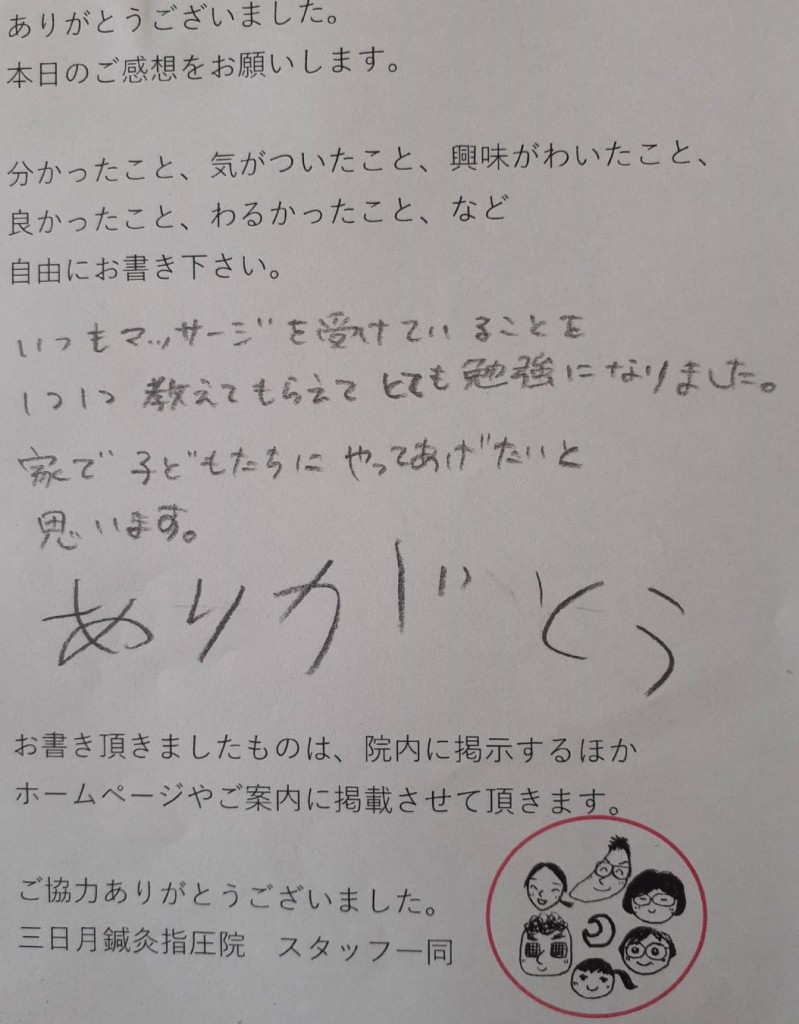 ありがとうございました。
本日のご感想をお願いします。
分かったこと、気がついたこと、興味がわいたこと、
良かったこと、わるかったこと、など
自由にお書き下さい。
いつもマッサージを受けていることを
1つ1つ教えてもらえてとても勉強になりました。
家で子どもたちにやってあげたいと
思います。
ありがとう
お書き頂きましたものは、院内に掲示するほか
ホームページやご案内に掲載させて頂きます。
ご協力ありがとうございました。
三日月鍼灸指圧院　スタッフ一同